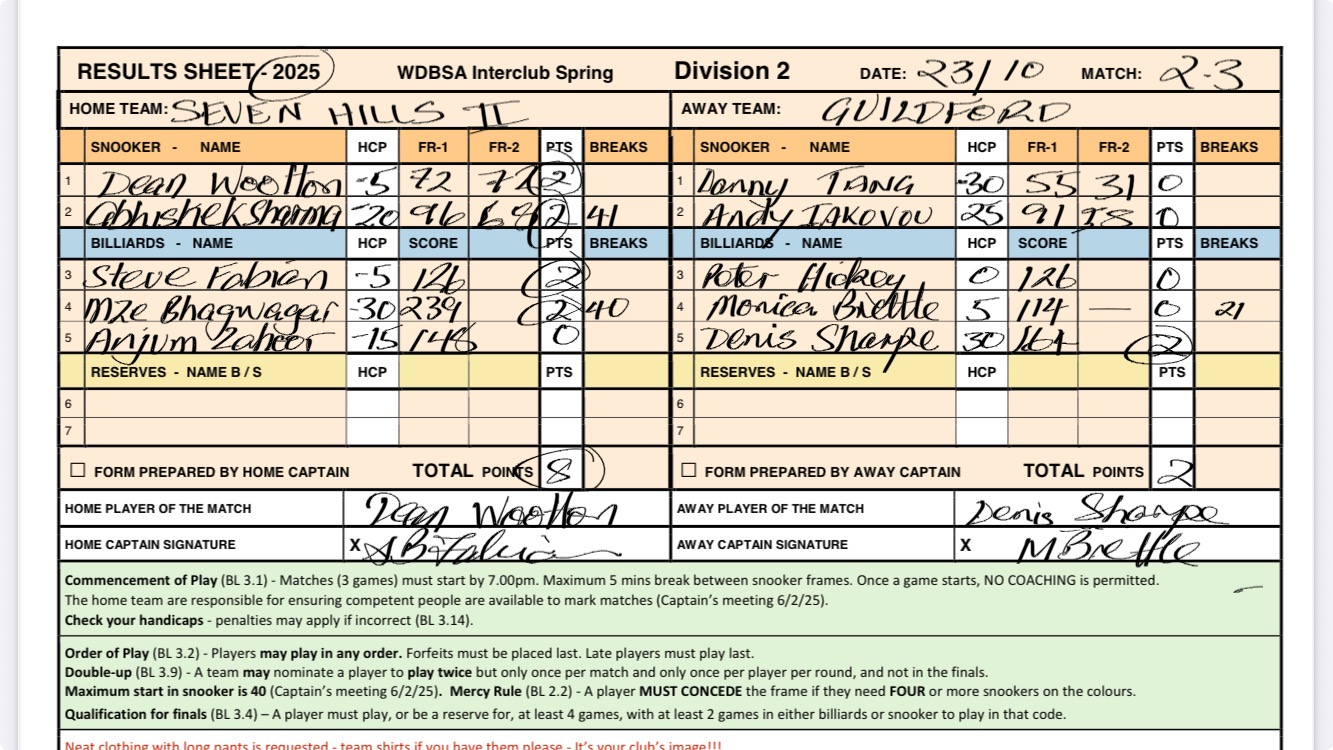 RESULTS SHEET - 2025 WDBSA Interclub Spring Division 2 DATE: 23/10 MATCH: 2-3
HOME TEAM: SEVEN HILLS II AWAY TEAM: GUILDFORD
SNOOKER - NAME HCP FR-1 FR-2 PTS BREAKS SNOOKER - NAME HCP FR-1 FR-2 PTS BREAKS
1 Dean Wootton -5 72 77 2 1 Danny TANG -30 55 31 0
2 Abhishek Sharma -20 96 69 2 41 2 Andy IAKOVOU 25 91 0
BILLIARDS - NAME HCP SCORE PTS BREAKS BILLIARDS - NAME HCP SCORE PTS BREAKS
3 Steve Fabian -5 126 2 3 Peter Hickey 0 126 0
4 Mze Bhagwagar -30 239 2 40 4 Monica Brettle 5 114 — 0 21
5 Anjum Zaheer -15 148 0 5 Denis Sharpe 30 164 2
RESERVES - NAME B / S HCP PTS RESERVES - NAME B / S HCP PTS
6 6
7 7
☐ FORM PREPARED BY HOME CAPTAIN TOTAL POINTS 8 ☐ FORM PREPARED BY AWAY CAPTAIN TOTAL POINTS 2
HOME PLAYER OF THE MATCH Dean Wootton AWAY PLAYER OF THE MATCH Denis Sharpe
HOME CAPTAIN SIGNATURE X AWAY CAPTAIN SIGNATURE X M Brettle
Commencement of Play (BL 3.1) - Matches (3 games) must start by 7.00pm. Maximum 5 mins break between snooker frames. Once a game starts, NO COACHING is permitted.
The home team are responsible for ensuring competent people are available to mark matches (Captain's meeting 6/2/25).
Check your handicaps - penalties may apply if incorrect (BL 3.14).
Order of Play (BL 3.2) - Players may play in any order. Forfeits must be placed last. Late players must play last.
Double-up (BL 3.9) - A team may nominate a player to play twice but only once per match and only once per player per round, and not in the finals.
Maximum start in snooker is 40 (Captain's meeting 6/2/25). Mercy Rule (BL 2.2) - A player MUST CONCEDE the frame if they need FOUR or more snookers on the colours.
Qualification for finals (BL 3.4) – A player must play, or be a reserve for, at least 4 games, with at least 2 games in either billiards or snooker to play in that code.
Neat clothing with long pants is requested - team shirts if you have them please - It's your club's image!!!